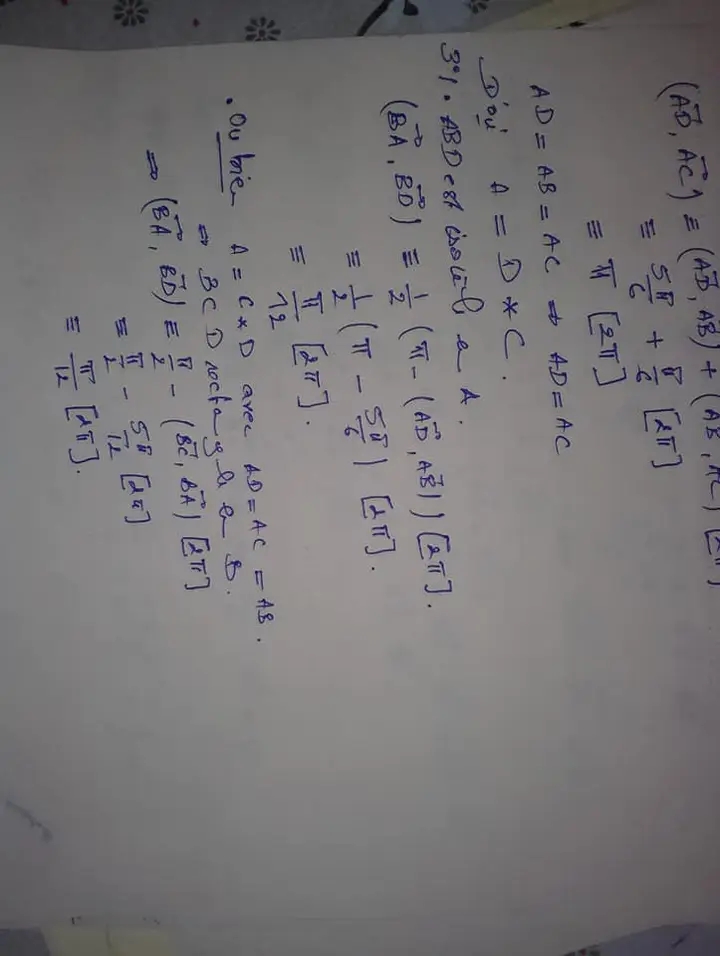 (AD⃗, AC⃗) ≡ (AD⃗, AB⃗) + (AB⃗, AC⃗) [2π]
≡ 5π/6 + π/6 [2π]
≡ π [2π]
AD = AB = AC ⇒ AD = AC
D'où A = D * C.
3°/. ABD est isocèle en A.
(BA⃗, BD⃗) ≡ 1/2 (π - (AD⃗, AB⃗)) [2π].
≡ 1/2 (π - 5π/6) [2π].
≡ π/12 [2π].
• Ou bien A = C * D avec AD = AC = AB.
⇒ BCD rectangle en B.
⇒ (BA⃗, BD⃗) ≡ π/2 - (BC⃗, BA⃗) [2π]
≡ π/2 - 5π/12 [2π]
≡ π/12 [2π].